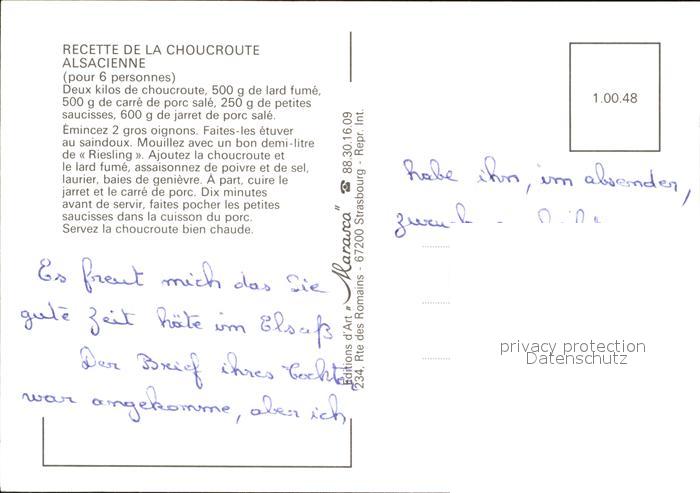 RECETTE DE LA CHOUCROUTE
ALSACIENNE
(pour 6 personnes)
Deux kilos de choucroute, 500 g de lard fumé,
500 g de carré de porc salé, 250 g de petites
saucisses, 600 g de jarret de porc salé.
Émincez 2 gros oignons. Faites-les étuver
au saindoux. Mouillez avec un bon demi-litre
de « Riesling ». Ajoutez la choucroute et
le lard fumé, assaisonnez de poivre et de sel,
laurier, baies de genièvre. À part, cuire le
jarret et le carré de porc. Dix minutes
avant de servir, faites pocher les petites
saucisses dans la cuisson du porc.
Servez la choucroute bien chaude.
Es freut mich das Sie
gute Zeit häte im Elsaß
Der Brief ihres Tochter
war angekomme, aber ich
Editions d'Art " Marasca " ☎ 88.30.16.09
234, Rte des Romains - 67200 Strasbourg - Repr. Int.
1.00.48
habe ihn, im absender,
privacy protection
Datenschutz